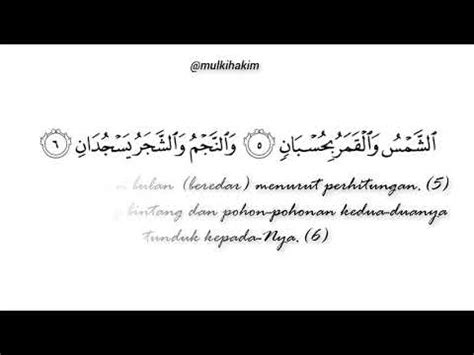 @mulkihakim
الشَّمْسُ وَالْقَمَرُ بِحُسْبَانٍ ۝٥ وَالنَّجْمُ وَالشَّجَرُ يَسْجُدَانِ ۝٦
bulan (beredar) menurut perhitungan. (5)
bintang dan pohon-pohonan kedua-duanya
tunduk kepada-Nya. (6)